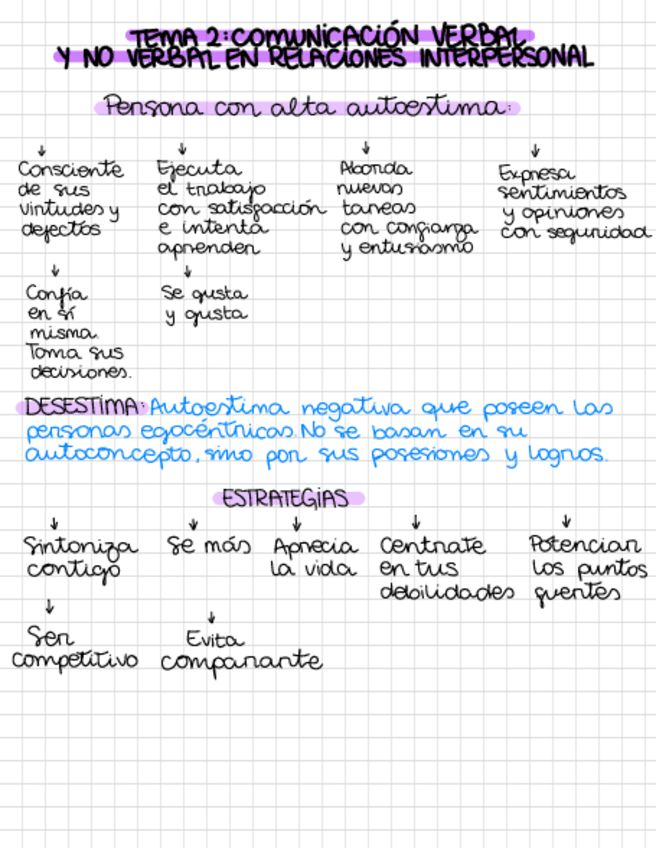 TEMA 2: COMUNICACIÓN VERBAL
Y NO VERBAL EN RELACIONES INTERPERSONAL
Persona con alta autoestima:
Consciente
de sus
virtudes y
defectos
Ejecuta
el trabajo
con satisfacción
e intenta
aprender
Aborda
nuevas
tareas
con confianza
y entusiasmo
Expresa
sentimientos
y opiniones
con seguridad
Confía
en sí
misma.
Toma sus
decisiones.
Se gusta
y gusta
DESESTIMA: Autoestima negativa que poseen las
personas egocéntricas. No se basan en su
autoconcepto, sino por sus posesiones y logros.
ESTRATEGIAS
Sintoniza
contigo
Se más
Aprecia
la vida
Centrate
en tus
debilidades
Potenciar
los puntos
fuertes
Ser
competitivo
Evita
compararte